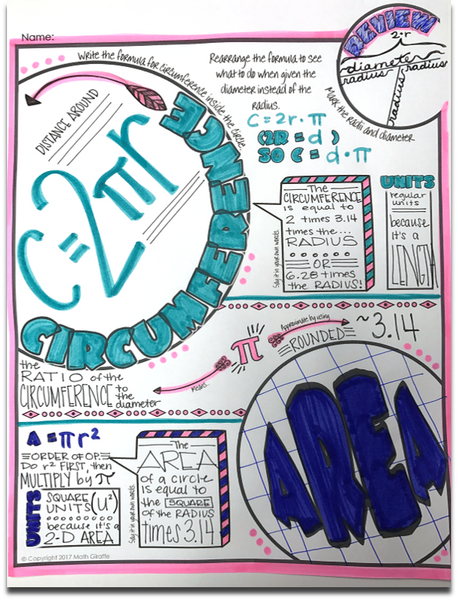 Name:
REVIEW
2·r
diameter
radius
radius
radius
Mark the radii and diameter
Write the formula for circumference inside the circle.
DISTANCE AROUND
C=2πr
CIRCUMFERENCE
Rearrange the formula to see
what to do when given the
diameter instead of the
radius.
C=2r·π
(2R=d)
SO C=d·π
Say it in your own words
The
CIRCUMFERENCE
is equal to
2 times 3.14
times the...
RADIUS
OR
6.28 times
the RADIUS!
UNITS
regular
units
because
it's a
LENGTH
the
RATIO of the
CIRCUMFERENCE to
the diameter
means
π
Approximate by using
ROUNDED
~3.14
A=πr²
ORDER OF OP.
Do r² FIRST, then
MULTIPLY by π
UNITS
SQUARE
UNITS (U²)
because it's a
2-D AREA
Say it in your own words
The
AREA
of a circle
is equal to
the SQUARE
of the RADIUS
times 3.14
AREA
© Copyright 2017 Math Giraffe